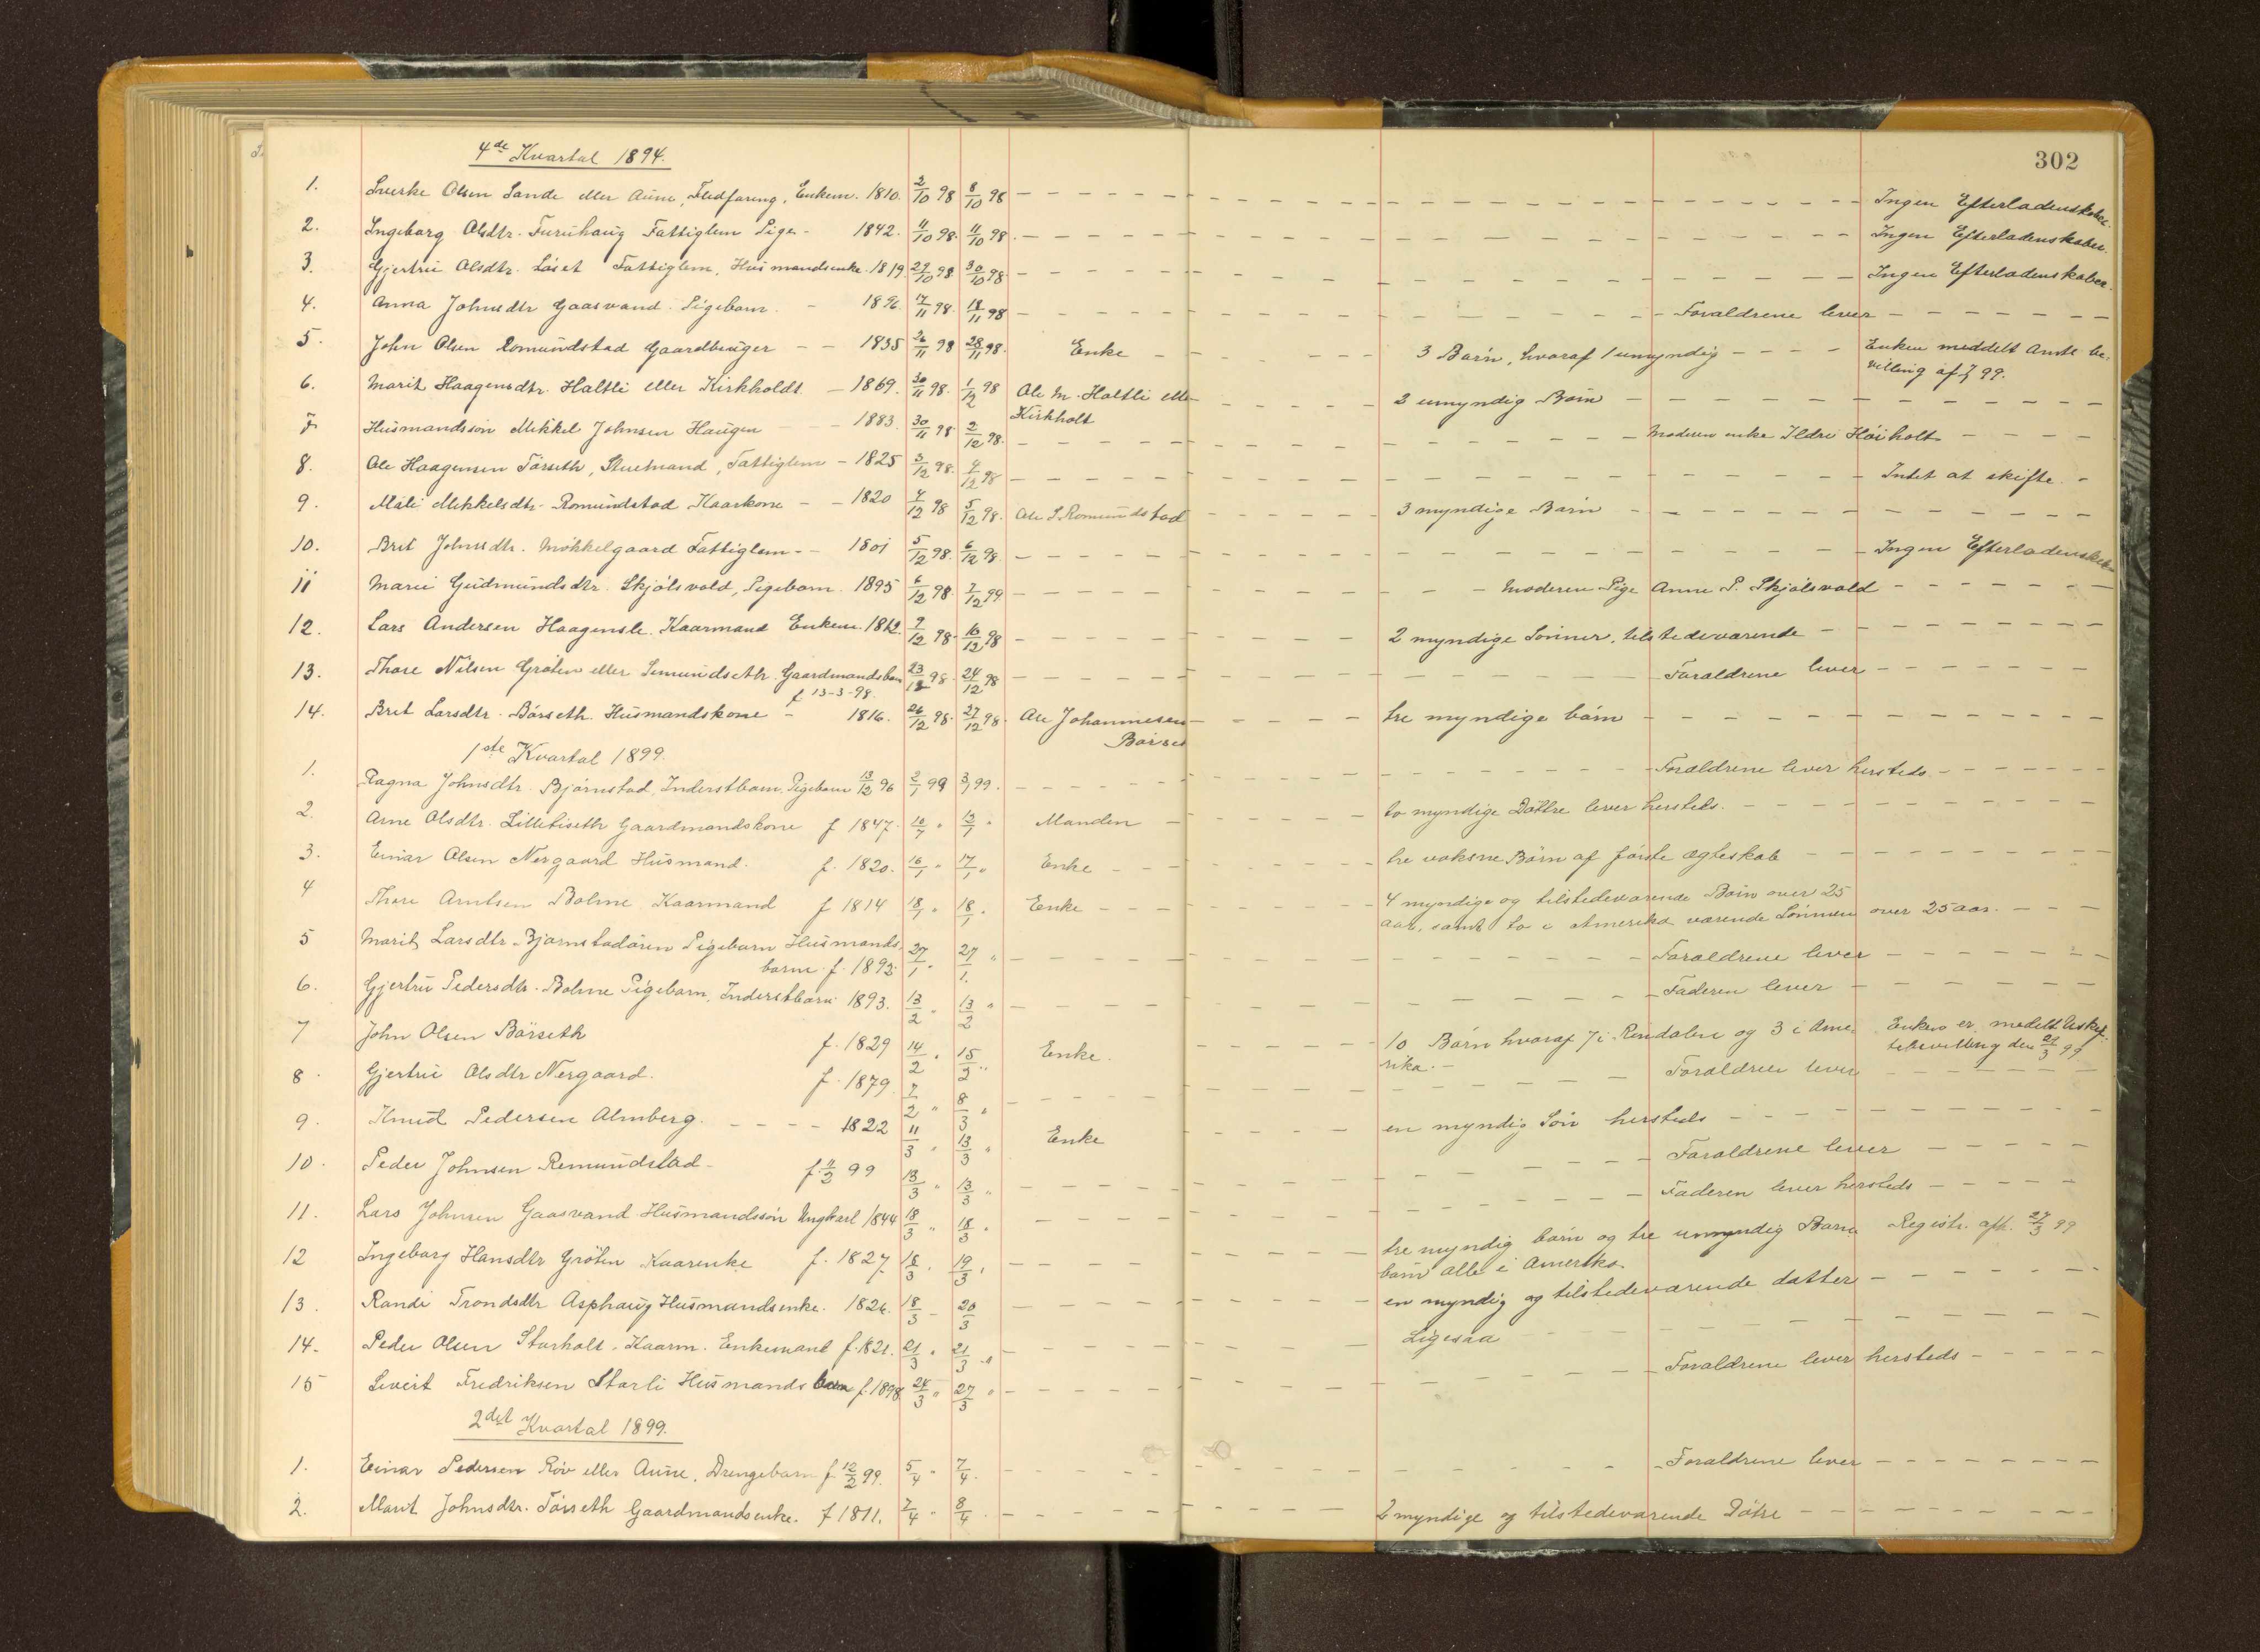 302
4de Kvartal 1894.
1. Sverke Olsen Sande eller Aune, Fledføring, Enkem. 1810. 2/10 98 8/10 98 Ingen Efterladenskaber.
2. Ingeborg Olsdtr. Furuhaug Fattiglem Pige - 1842. 11/10 98. 11/10 98. Ingen Efterladenskaber.
3. Gjertru Olsdtr. Løset Fattiglem, Husmandsenke. 1819. 29/10 98 30/10 98 Ingen Efterladenskaber.
4. Anna Johnsdtr Gaasvand. Pigebarn. - 1896. 17/11 98. 18/11 98 Forældrene lever
5. John Olsen Romundstad Gaardbruger - - 1835 26/11 98 28/11 98. Enke 3 Børn, hvoraf 1 umyndig Enken meddelt Amts be-
villing af 99.
6. Marit Haagensdtr. Haltli eller Kirkholdt - 1869. 30/11 98. 1/12 98 Ole M. Haltli eller 2 umyndig Børn
Kirkholt
7. Husmandssøn Mikkel Johnsen Haugen - - 1883. 30/11 98 2/12 98. Moderen enke Ildri Høiholt
8. Ole Haagensen Tørseth, Stuemand, Fattiglem - 1825 3/12 98. 4/12 98 Intet at skifte. -
9. Mali Mikkelsdtr. Romundstad Kaarkone - - 1820 4/12 98 5/12 98. Ole S. Romundstad 3 myndige Børn
10. Brit Johnsdtr. Mokkelgaard Fattiglem - - 1801 5/12 98. 6/12 98. Ingen Efterladenskab
11 Marie Gudmundsdtr. Skjølsvold, Pigebarn. 1895 6/12 98. 7/12 99 Moderen Pige Anne P. Skjølsvold
12. Lars Andersen Haagensle. Kaarmand Enkem. 1812. 9/12 98. 10/12 98 2 myndige Sønner, tilstedeværende
13. Thore Nilsen Grøten eller Semundseth. Gaardmandsbarn 23/12 98. 24/12 98 Forældrene lever
f. 13-3-98.
14. Brit Larsdtr. Børseth. Husmandskone - 1816. 26/12 98. 27/12 98. Ole Johannesen tre myndige børn
Børset
1ste Kvartal 1899.
1. Ragna Johnsdtr. Bjørnstad, Inderstbarn, Pigebarn 13/12 96 2/1 99 3/1 99. Forældrene lever hersteds.
2. Arne Olsdtr. Lillebiseth Gaardmandskone f 1847. 10/1 " 13/1 " Manden to myndige Døttre lever hersteds.
3. Einar Olsen Nergaard Husmand. f. 1820. 16/1 " 17/1 " Enke tre voksne Børn af første Ægteskab
4 Thore Arntsen Bolme Kaarmand f 1814 18/1 " 18/1 " Enke 4 myndige og tilstedeværende Børn over 25
aar, samt to i Amerika værende Sønner over 25 aar.
5 Marit Larsdtr. Bjørnstadøren Pigebarn Husmands-
barn f. 1893. 27/1 " 27/1. " Forældrene lever
6. Gjertru Pedersdtr. Bolme Pigebarn, Inderstbarn 1893. 13/2 " 13/2 " Faderen lever
7 John Olsen Børseth f. 1829 14/2 " 15/2 " Enke. 10 Børn hvoraf 7 i Rindalen og 3 i Ame- Enken er meddelt Uskif-
rika. - tebevilling den 21/3 99
8. Gjertru Olsdtr Nergaard. f. 1879. 7/2 " 8/3 " Forældrene lever
9. Knud Pedersen Almberg. - - - - 1822 11/3 " 13/3 " Enke en myndig Søn hersteds
10. Peder Johnsen Romundstad - f. 11/3 99 13/3 " 13/3 " Forældrene lever
11. Lars Johnsen Gaasvand Husmandssøn Ungkarl 1844 18/3 " 18/3 " Faderen lever hersteds
12 Ingeborg Hansdtr Grøten Kaarenke f. 1827 18/3 " 19/3 " tre myndig børn og tre umyndig Barne Registr. afh. 27/3 99
børn alle i Amerika
13. Randi Trondsdtr Asphaug Husmandsenke. 1826. 18/3 - 20/3 en myndig og tilstedeværende datter
14. Peder Olsen Storholt. Kaarm. Enkemand f. 1821. 21/3 " 21/3 " Ligesaa
15 Sivert Fredriksen Storli Husmandsbarn f. 1898 24/3 " 27/3 " Forældrene lever hersteds
2det Kvartal 1899.
1. Einar Pedersen Røv eller Aune, Drengebarn f 12/2 99. 5/4 " 7/4. Forældrene lever
2. Marit Johnsdtr. Tørseth Gaardmandsenke. f 1811. 7/4 " 8/4. 2 myndige og tilstedeværende Døtre